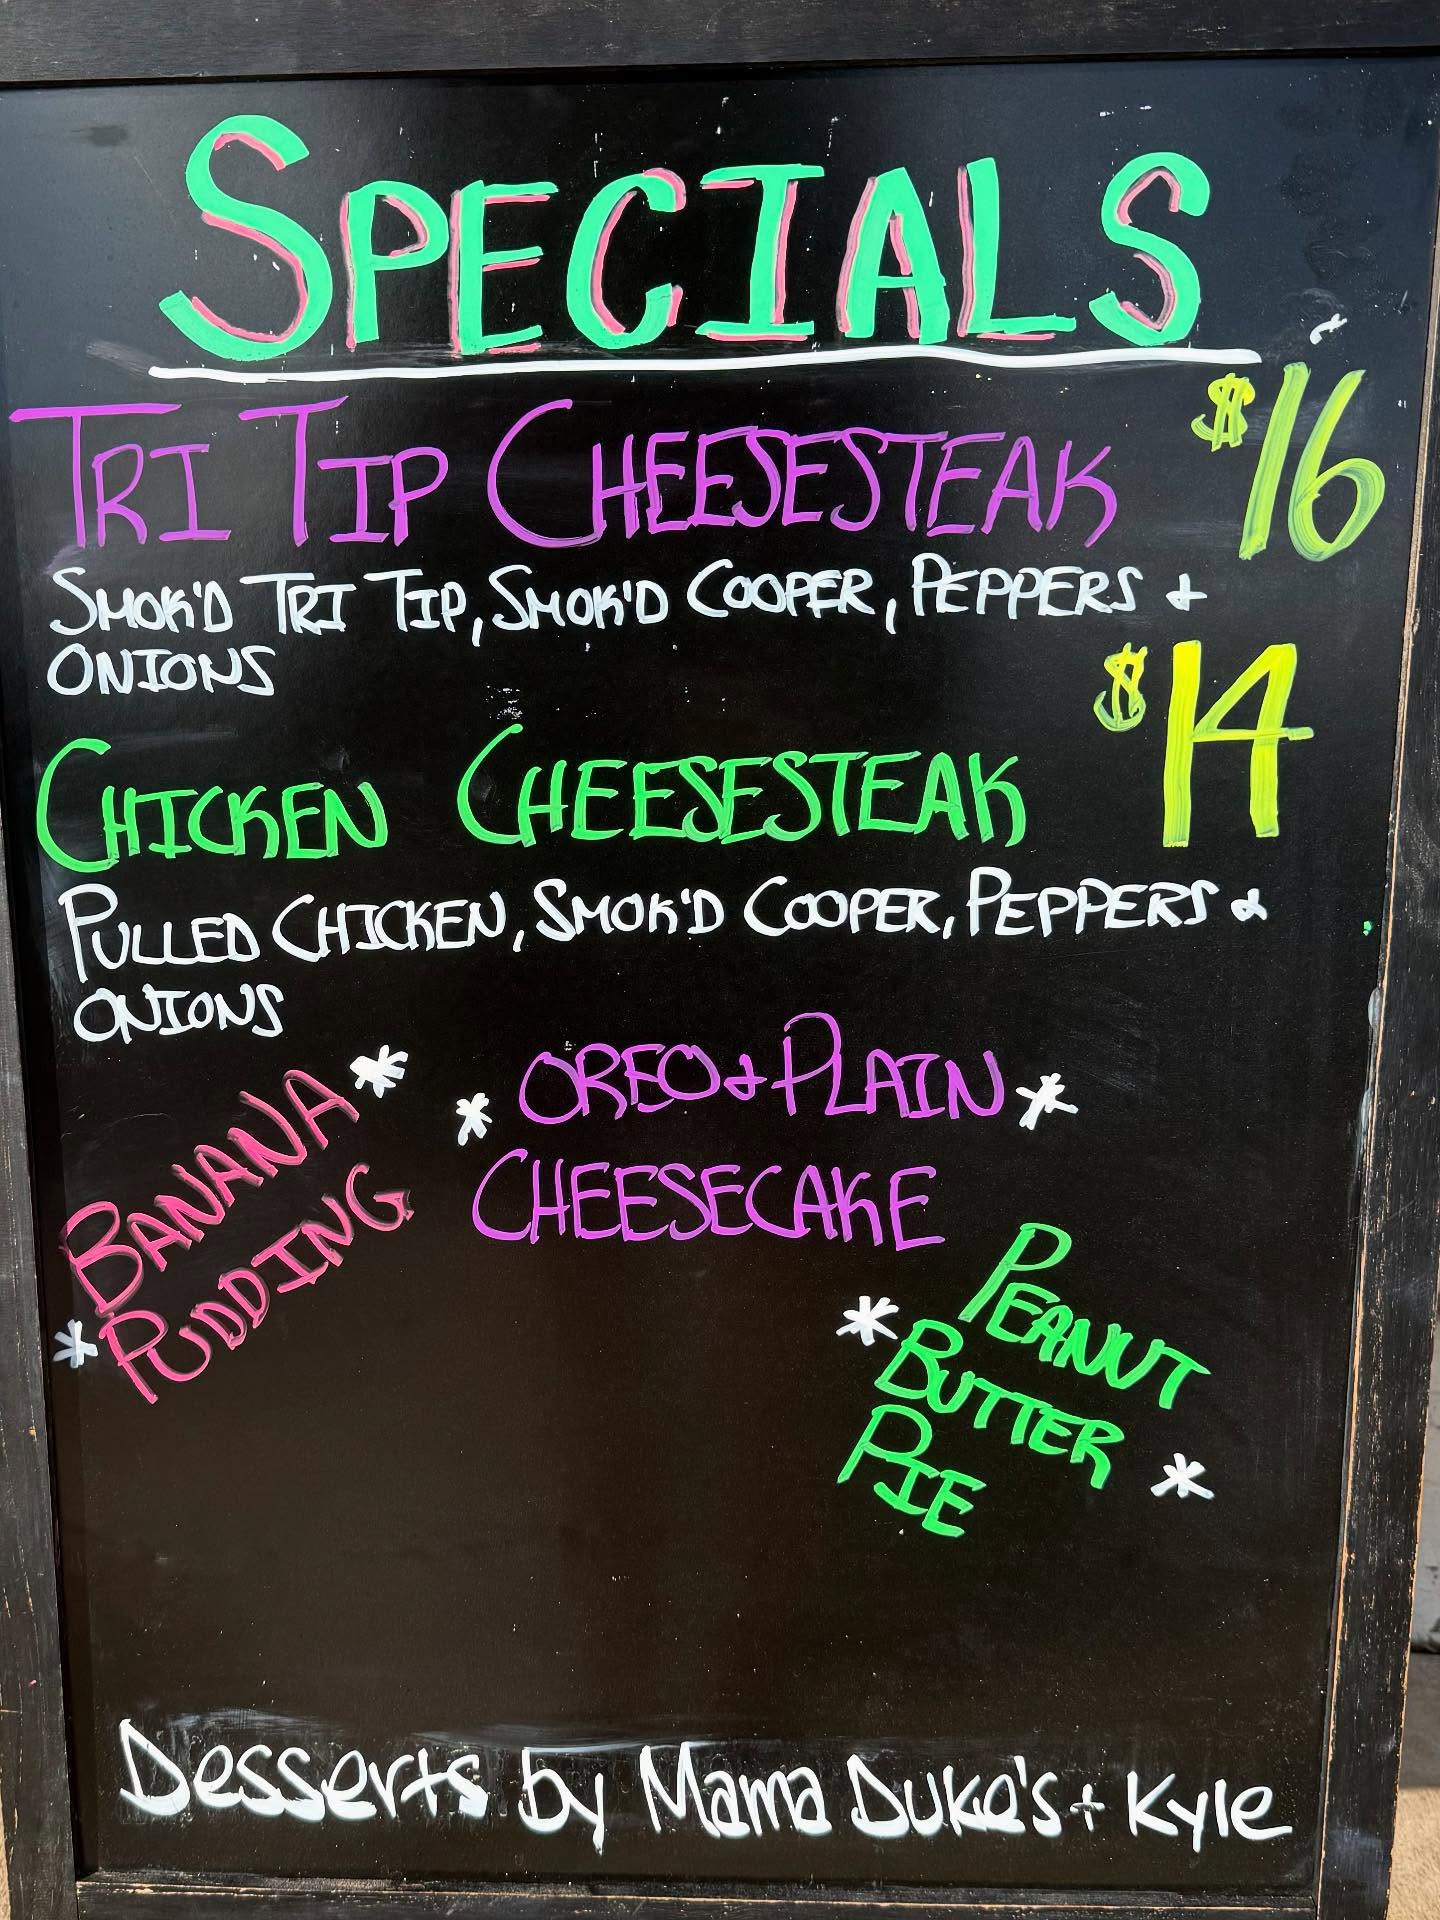 SPECIALS
TRI TIP CHEESESTEAK $16
SMOK'D TRI TIP, SMOK'D COOPER, PEPPERS +
ONIONS
CHICKEN CHEESESTEAK $14
PULLED CHICKEN, SMOK'D COOPER, PEPPERS &
ONIONS
BANANA *
* PUDDING
* OREO & PLAIN *
CHEESECAKE
PEANUT
* BUTTER *
PIE
Desserts by Mama Duke's + Kyle